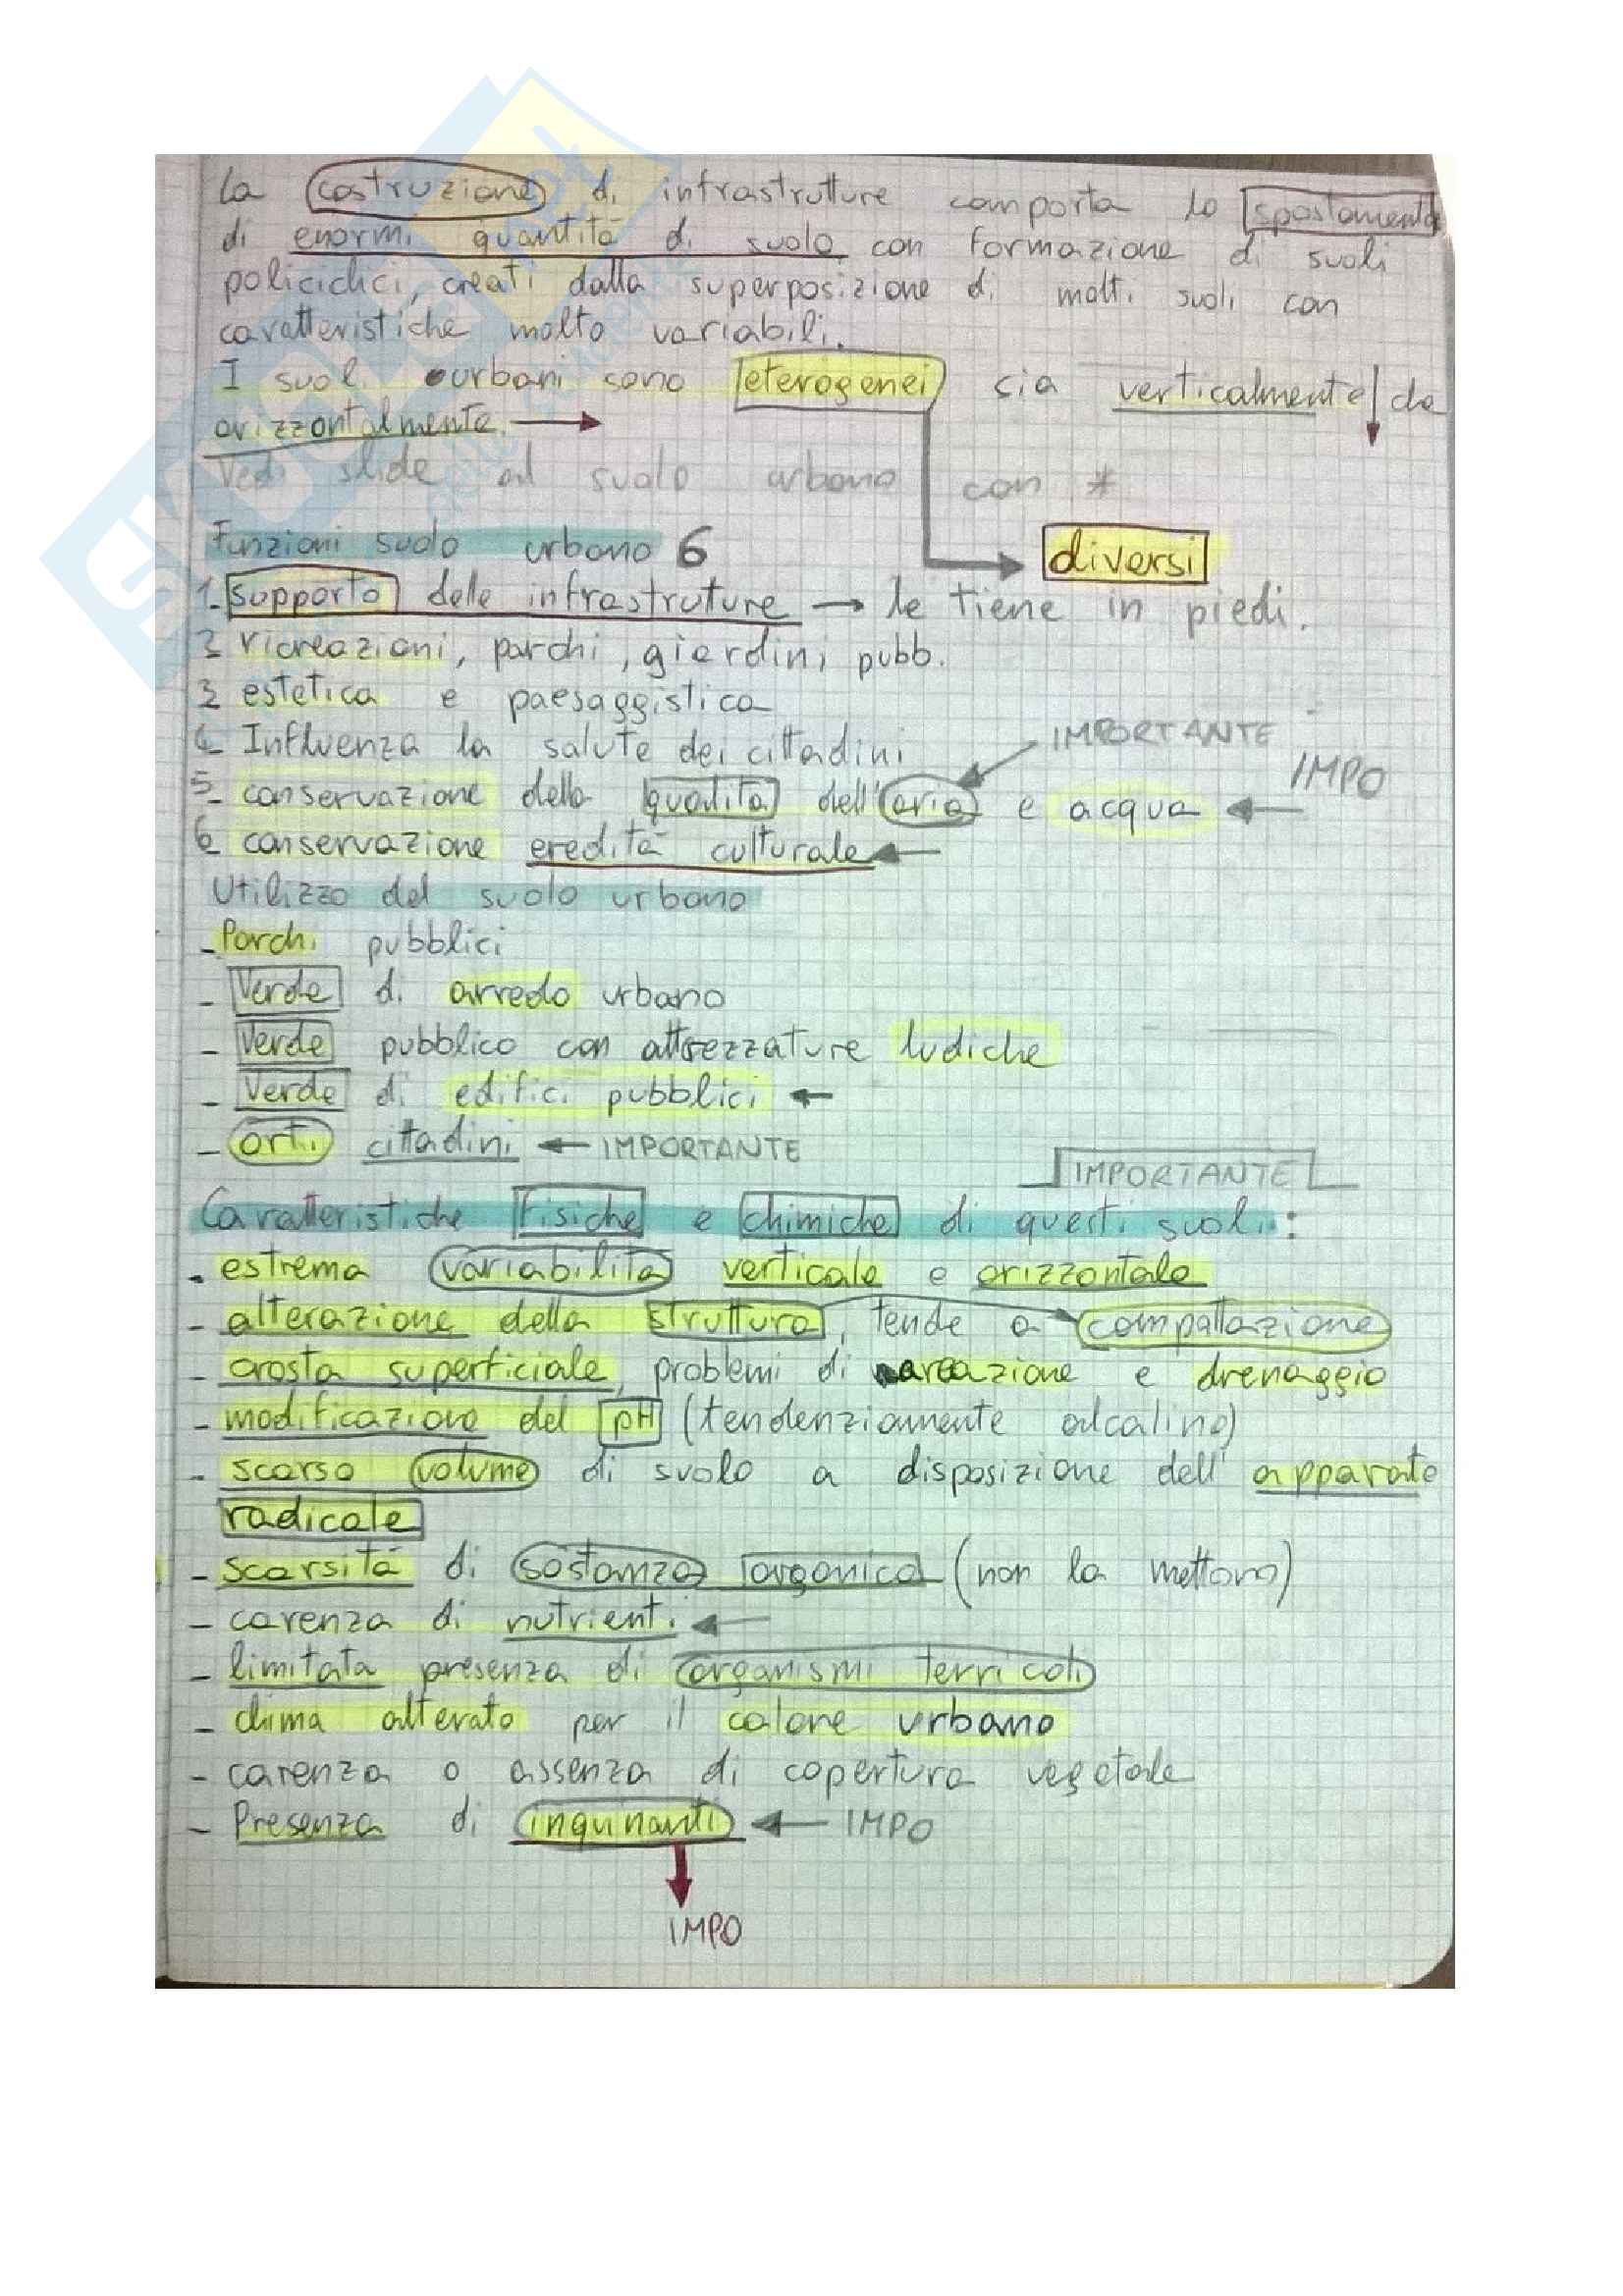 La costruzione di infrastrutture comporta lo spostamento
di enormi quantità di suolo con formazione di suoli
policiclici, creati dalla superposizione di molti suoli con
caratteristiche molto variabili.
I suoli urbani sono eterogenei sia verticalmente che
orizzontalmente.
Vedi slide al suolo urbano con *
Funzioni suolo urbano 6
diversi
1- supporto delle infrastruture → le tiene in piedi.
2 ricreazioni, parchi, giardini pubb.
3 estetica e paesaggistica
4 Influenza la salute dei cittadini
IMPORTANTE
5- conservazione della qualità dell'aria e acqua ← IMPO
6 conservazione eredità culturale ←
Utilizzo del suolo urbano
- Parchi pubblici
- Verde di arredo urbano
- Verde pubblico con attrezzature ludiche
- Verde di edifici pubblici ←
- orti cittadini ← IMPORTANTE
IMPORTANTE
Caratteristiche fisiche e chimiche di questi suoli:
- estrema variabilità verticale e orizzontale
- alterazione della struttura, tende a compattazione
- crosta superficiale, problemi di areazione e drenaggio
- modificazione del pH (tendenziamente alcalino)
- scarso volume di suolo a disposizione dell'apparato
radicale
- scarsità di sostanza organica (non la mettono)
- carenza di nutrienti ←
- limitata presenza di organismi terricoli
- clima alterato per il calore urbano
- carenza o assenza di copertura vegetale
- Presenza di inquinanti ← IMPO
IMPO